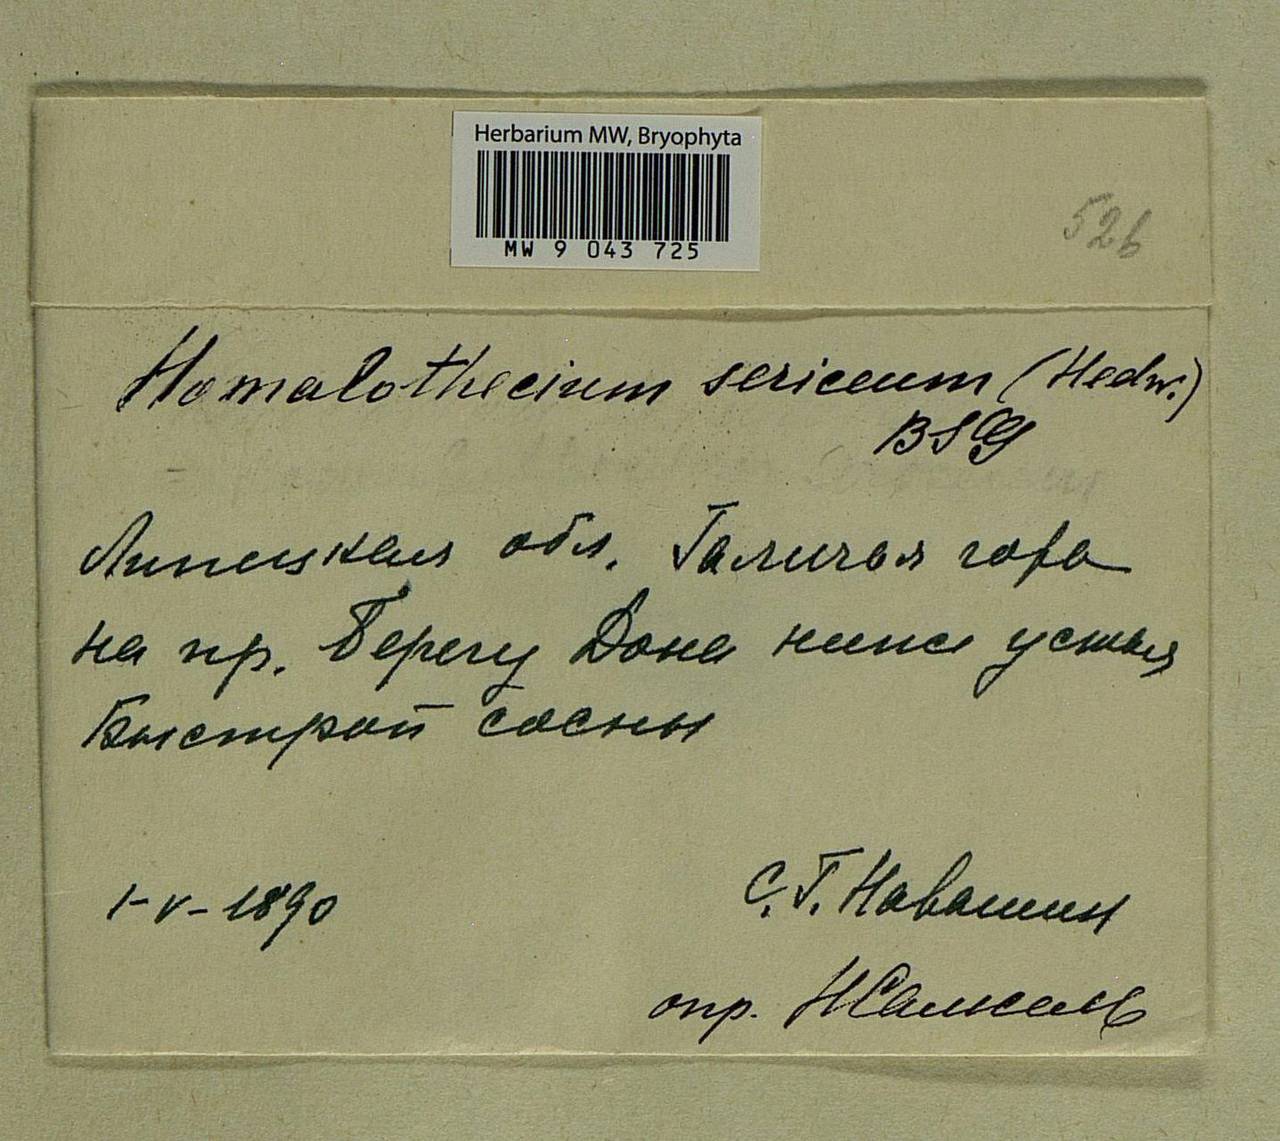 Herbarium MW, Bryophyta
MW 9 043 725
526
Homalothecium sericeum (Hedw.)
BSG
Липецкая обл. Галичья гора
на пр. берегу Дона ниже устья
Быстрой сосны
1-V-1890
С.Г. Навашин
опр.